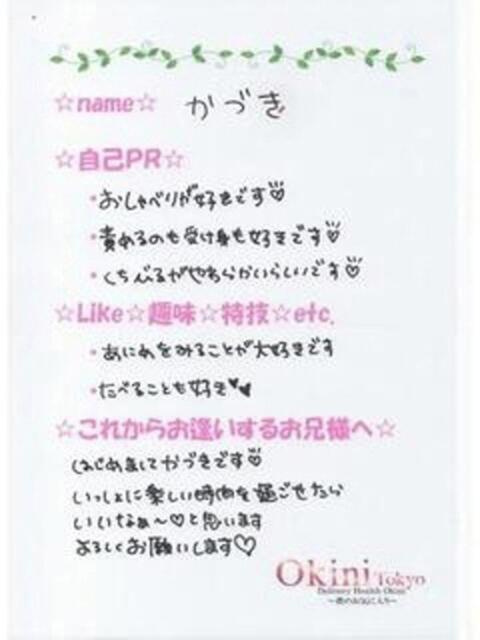 ☆name☆ かづき
☆自己PR☆
・おしゃべりが好きです♡
・責めるのも受け身も好きです♡
・くちびるがやわらかいらしいです♡
☆Like☆趣味☆特技☆etc.
・あにめをみることが大好きです
・たべることも好き♥♥
☆これからお逢いするお兄様へ☆
はじめましてかづきです♡
いっしょに楽しい時間を過ごせたら
いいなぁ〜♡と思います
よろしくお願いします♡
Okini Tokyo
Delivery Health Okini